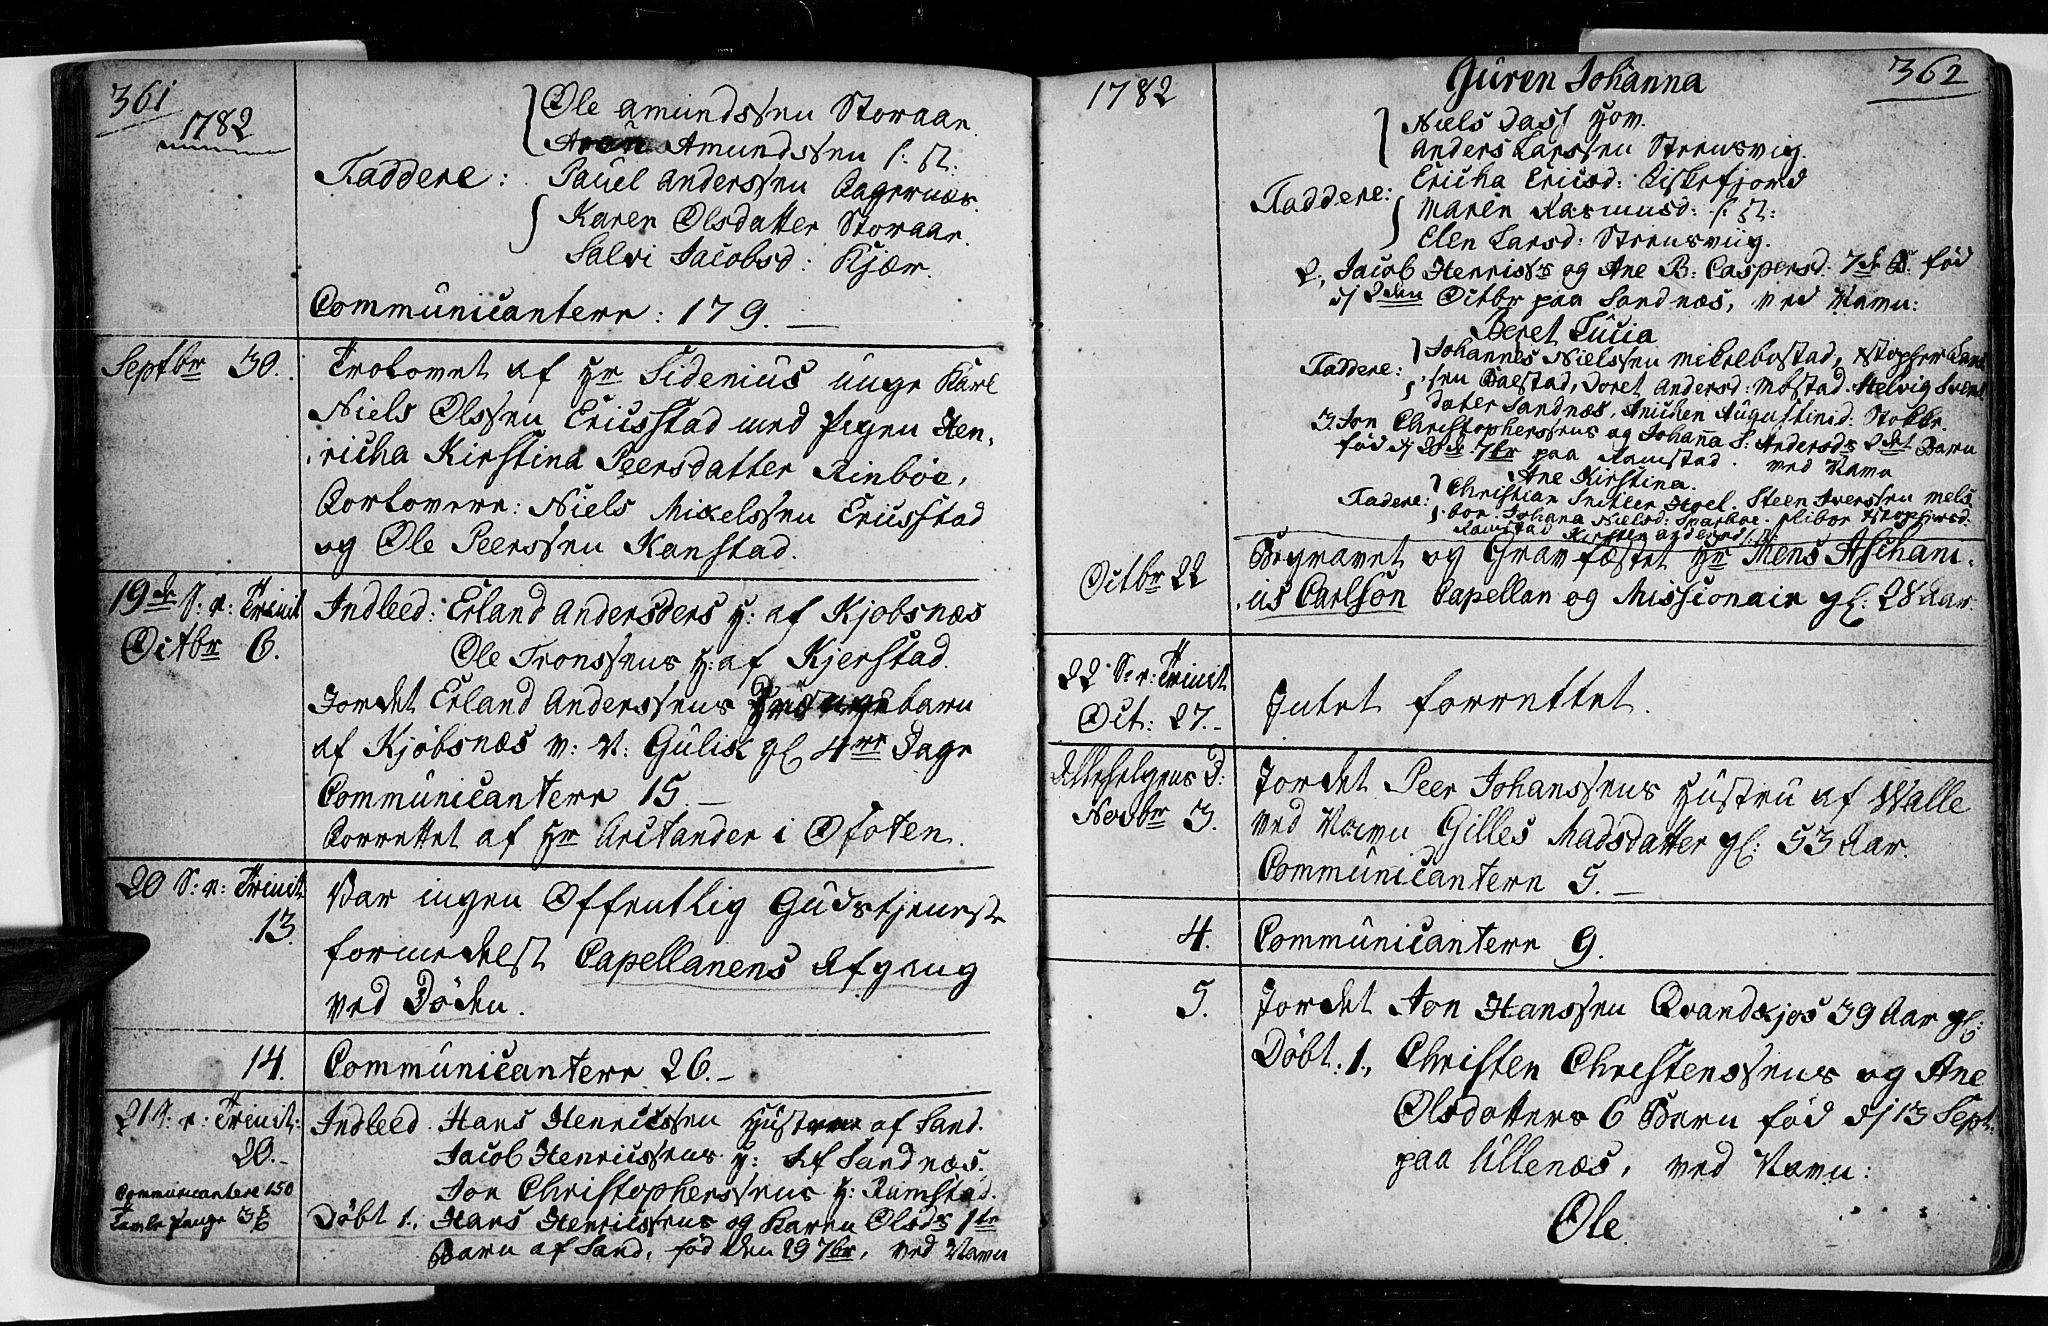 361
1782
Ole Amundssen Storaae.
Amundssen s: st:
Faddere: Pauel Anderssen Bagernæs.
Karen Olsdatter Storaae.
Salvi Jacobsd: Kjær.
Communicantere: 179. —
Septbr 30. Trolovet af Hr Sidenius unge Karl
Niels Olssen Ericsstad med Pigen Hen,
richa Kirstina Peersdatter Rinbøe,
Forlovere: Niels Mikelssen Ericsstad
og Ole Peerssen Kanstad.
19de S: p: Trinit Octbr 6. Indleed: Erland Anderssens H: af Kjobsnæs
Ole Tronssens H: af Kjerstad.
Jordet Erland Anderssens barn
af Kjøbsnæs v: N: Gulis gl 4re Dage
Communicantere 15. —
Forrettet af Hr Arctander i Ofoten.
20 S: p: Trinit. 13. Var ingen Offentlig Gudstjeneste
formedelst Capellanens Afgang
ved Døden.
14. Communicantere 26. —
21 S: p: Trinit: 20. — Indleed Hans Henricssen Hustrue af Sand.
Jacob Henricssens H: af Sandnæs.
Communicantere 150 Jon Christopherssens H: Ramstad.
Tavle Penge Døbt 1., Hans Henricssens og Karen Olsds 1te
Barn af Sand, fød den 29 7br, ved Navn
362
1782
Guren Johanna
Niels Dass Hov.
Anders Larssen Strensvig.
Faddere: Ericha Ericsd: Fiskefjord
Maren Rasmusd: s: st:
Elen Larsd: Strensviig.
2, Jacob Henrics og Ane B: Caspersd: 7de B: fød
dj 2den Octbr paa Sandnæs, ved Navn:
Beret Lucia
Faddere: Johannes Nielssen Mikelbostad,
sen Balstad, Doret Andersd: Møstad. Helvig Svens
dater Sandnæs, Anichen Augustinid: Stokke.
3 Jon Christopherssens og Johanna S: Andersds 2det Barn
fød dj 20de 7br paa Ramstad. ved Navn
Ane Kirstina.
Fadere: Christian Hoel. Steen Iverssen Mels
boe. Johana Nielsd: Sparboe.
Ramstad Kirsten Andersd:
Octbr 22 Begravet og Gravfæstet Hr Mens Aschani-
us Carlson Capellan og Missionair gl: 28 Aar
22 S: p: Trinit Oct: 27. — Intet forrettet.
Allehelgens D: Novbr 3. Jordet Peer Johanssens Hustru af Walle
ved Navn Gilles Madsdatter gl: 53 Aar.
Communicantere 5. —
4. Communicantere 9.
5. Jordet Jon Hanssen Qvandkjos 39 Aar gl:
Døbt: 1., Christen Christenssens og Ane
Olsdatters 6 Barn fød dj 13 Sept:
paa Lillenæs, ved Navn:
Ole.